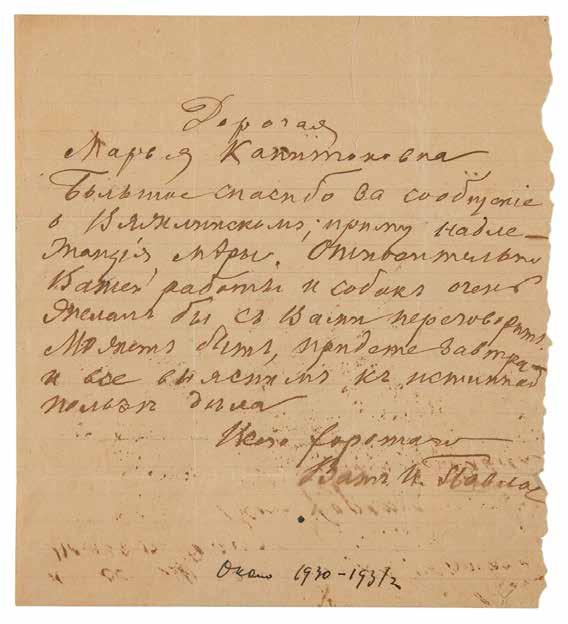 Дорогая
Марья Капитоновна
Большое спасибо за сообщеніе
о приму надле-
жащія мѣры. Относительно
Вашей работы и собакъ очень
желалъ бы съ Вами переговорить.
Можетъ быть, придете завтра
и все выяснимъ къ истинной
пользѣ дѣла
Всего хорошаго
Вашъ И. Павлов
Около 1930-1931/2